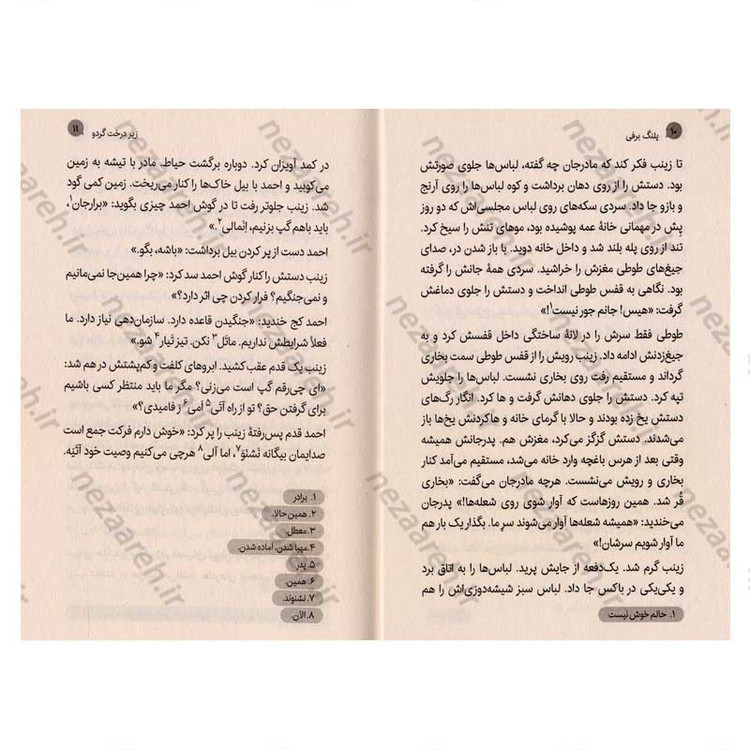 ۱۰ پلنگ برفی
تا زینب فکر کند که مادرجان چه گفته، لباس‌ها جلوی صورتش
بود. دستش را از روی دهان برداشت و کوه لباس‌ها را روی آرنج
و بازو جا داد. سردی سکه‌های روی لباس مجلسی‌اش که دو روز
پیش در مهمانی خانهٔ عمه پوشیده بود، موهای تنش را سیخ کرد.
تند از روی پله بلند شد و داخل خانه دوید. با باز شدن در، صدای
جیغ‌های طوطی مغزش را خراشید. سردی همهٔ جانش را گرفته
بود. نگاهی به قفس طوطی انداخت و دستش را جلوی دماغش
گرفت: «هیس! جانم جور نیست۱!»
طوطی فقط سرش را در لانهٔ ساختگی داخل قفسش کرد و به
جیغ‌زدنش ادامه داد. زینب رویش را از قفس طوطی سمت بخاری
گرداند و مستقیم رفت روی بخاری نشست. لباس‌ها را جلویش
تپه کرد. دستش را جلوی دهانش گرفت و ها کرد. انگار رگ‌های
دستش یخ زده بودند و حالا با گرمای خانه و هاکردنش یخ‌ها باز
می‌شدند. دستش گزگز می‌کرد، مغزش هم. پدرجانش همیشه
وقتی بعد از هرس باغچه وارد خانه می‌شد، مستقیم می‌آمد کنار
بخاری و رویش می‌نشست. هرچه مادرجان می‌گفت: «بخاری
قُر شد. همین روزهاست که آوار شوی روی شعله‌ها!» پدرجان
می‌خندید: «همیشه شعله‌ها آوار می‌شوند سرِ ما. بگذار یک بار هم
ما آوار شویم سرشان!»
زینب گرم شد. یک‌دفعه از جایش پرید. لباس‌ها را به اتاق برد
و یکی‌یکی در باکس جا داد. لباس سبز شیشه‌دوزی‌اش را هم
۱. حالم خوش نیست
زیر درخت گردو ۱۱
در کمد آویزان کرد. دوباره برگشت حیاط. مادر با تیشه به زمین
می‌کوبید و احمد با بیل خاک‌ها را کنار می‌ریخت. زمین کمی گود
شد. زینب جلوتر رفت تا در گوش احمد چیزی بگوید: «برارجان۱،
باید باهم گپ بزنیم، اِنمالی۲.»
احمد دست از پر کردن بیل برداشت: «باشه، بگو.»
زینب دستش را کنار گوش احمد سد کرد: «چرا همین‌جا نمی‌مانیم
و نمی‌جنگیم؟ فرار کردن چی اثر دارد؟»
احمد کج خندید: «جنگیدن قاعده دارد. سازمان‌دهی نیاز دارد. ما
فعلاً شرایطش نداریم. ماتَل۳ نکن. تیز تَیار۴ شو.»
زینب یک قدم عقب کشید. ابروهای کلفت و کم‌پشتش در هم شد:
«ای چی‌رقم گپ است می‌زنی؟ مگر ما باید منتظر کسی باشیم
برای گرفتن حق؟ تو از راه آتی۵ اَمی۶ رَ فامیدی؟»
احمد قدم پس‌رفتهٔ زینب را پر کرد: «خوش دارم فرکت جمع است
صدایمان بیگانه نَشنَوَ۷، اما آلی۸ هرچی می‌کنیم وصیت خود آتَیَه.
۱. برادر
۲. همین حالا.
۳. معطل.
۴. مهیا شدن، آماده شدن.
۵. پدر
۶. همین.
۷. نشنوند.
۸. الآن.
nezaareh.ir
nezaareh.ir
nezaareh.ir
nezaareh.ir
nezaareh.ir
nezaareh.ir